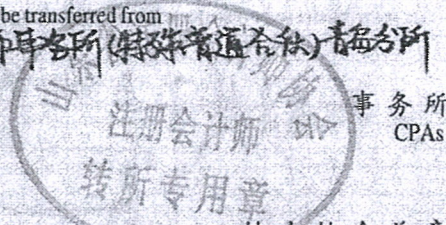 be transferred from
师事务所(特殊普通合伙)青岛分所
事务所
CPAs
注册会计师
转所专用章